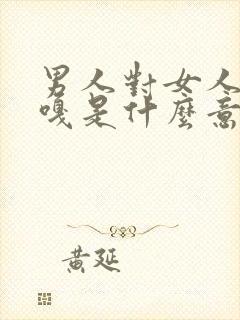 男人對女人
嘎是什麼意
黃延